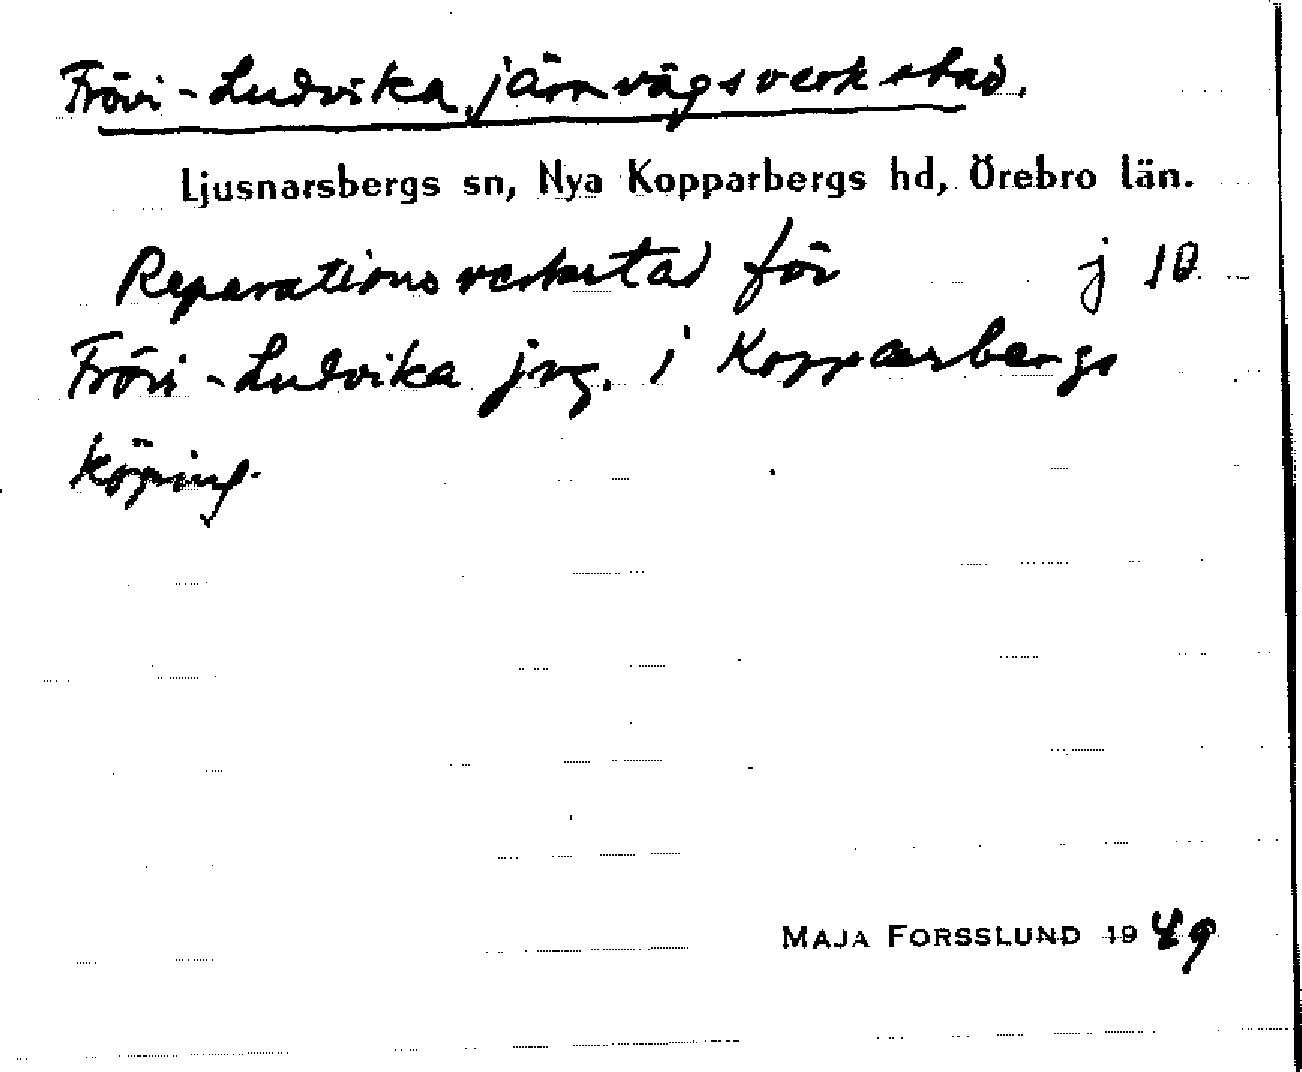 Frövi-Ludvika järnvägsverkstad.
Ljusnarsbergs sn, Nya Kopparbergs hd, Örebro län.
Reparationsverkstad för j 10
Frövi-Ludvika jvg. i Kopparbergs
köping.
MAJA FORSSLUND 1949